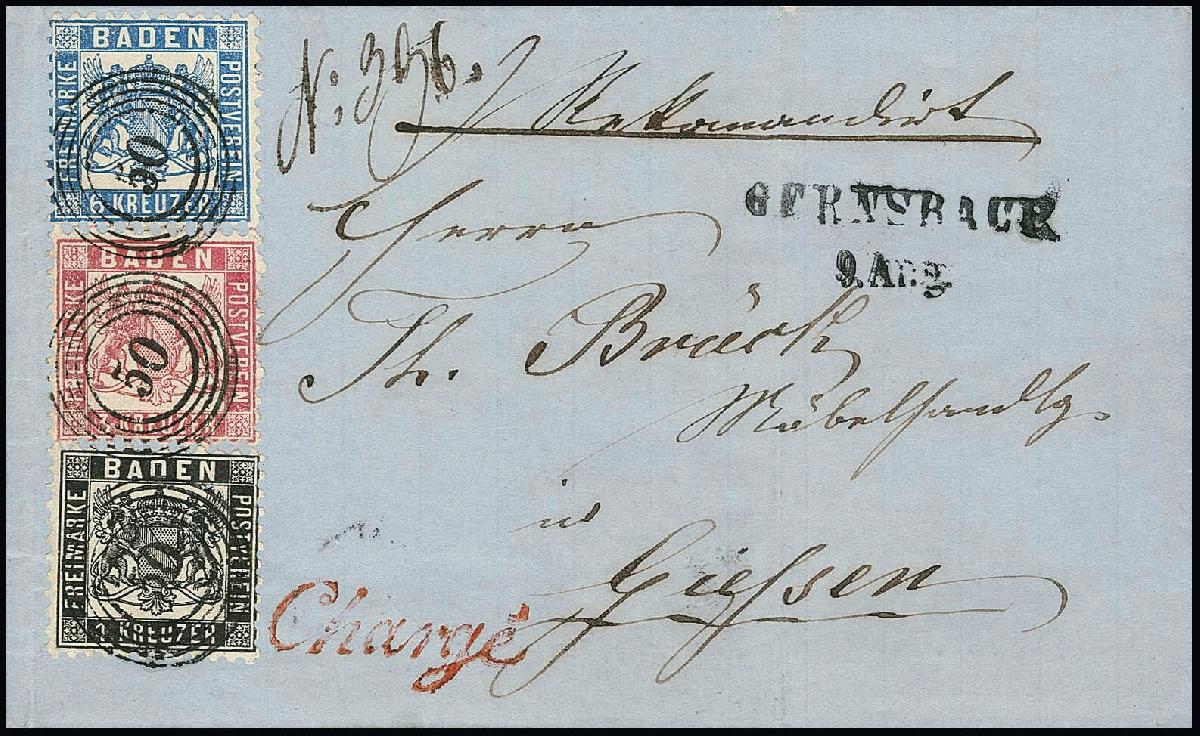 BADEN
FREIMARKE
POSTVEREIN
6 KREUZER
50
BADEN
FREIMARKE
POSTVEREIN
3 KREUZER
50
BADEN
FREIMARKE
POSTVEREIN
1 KREUZER
50
Rekomandirt
GERNSBACH
9. Aug.
Herrn
Th. Brück
Möbelhandlg.
in
Giessen
Chargé